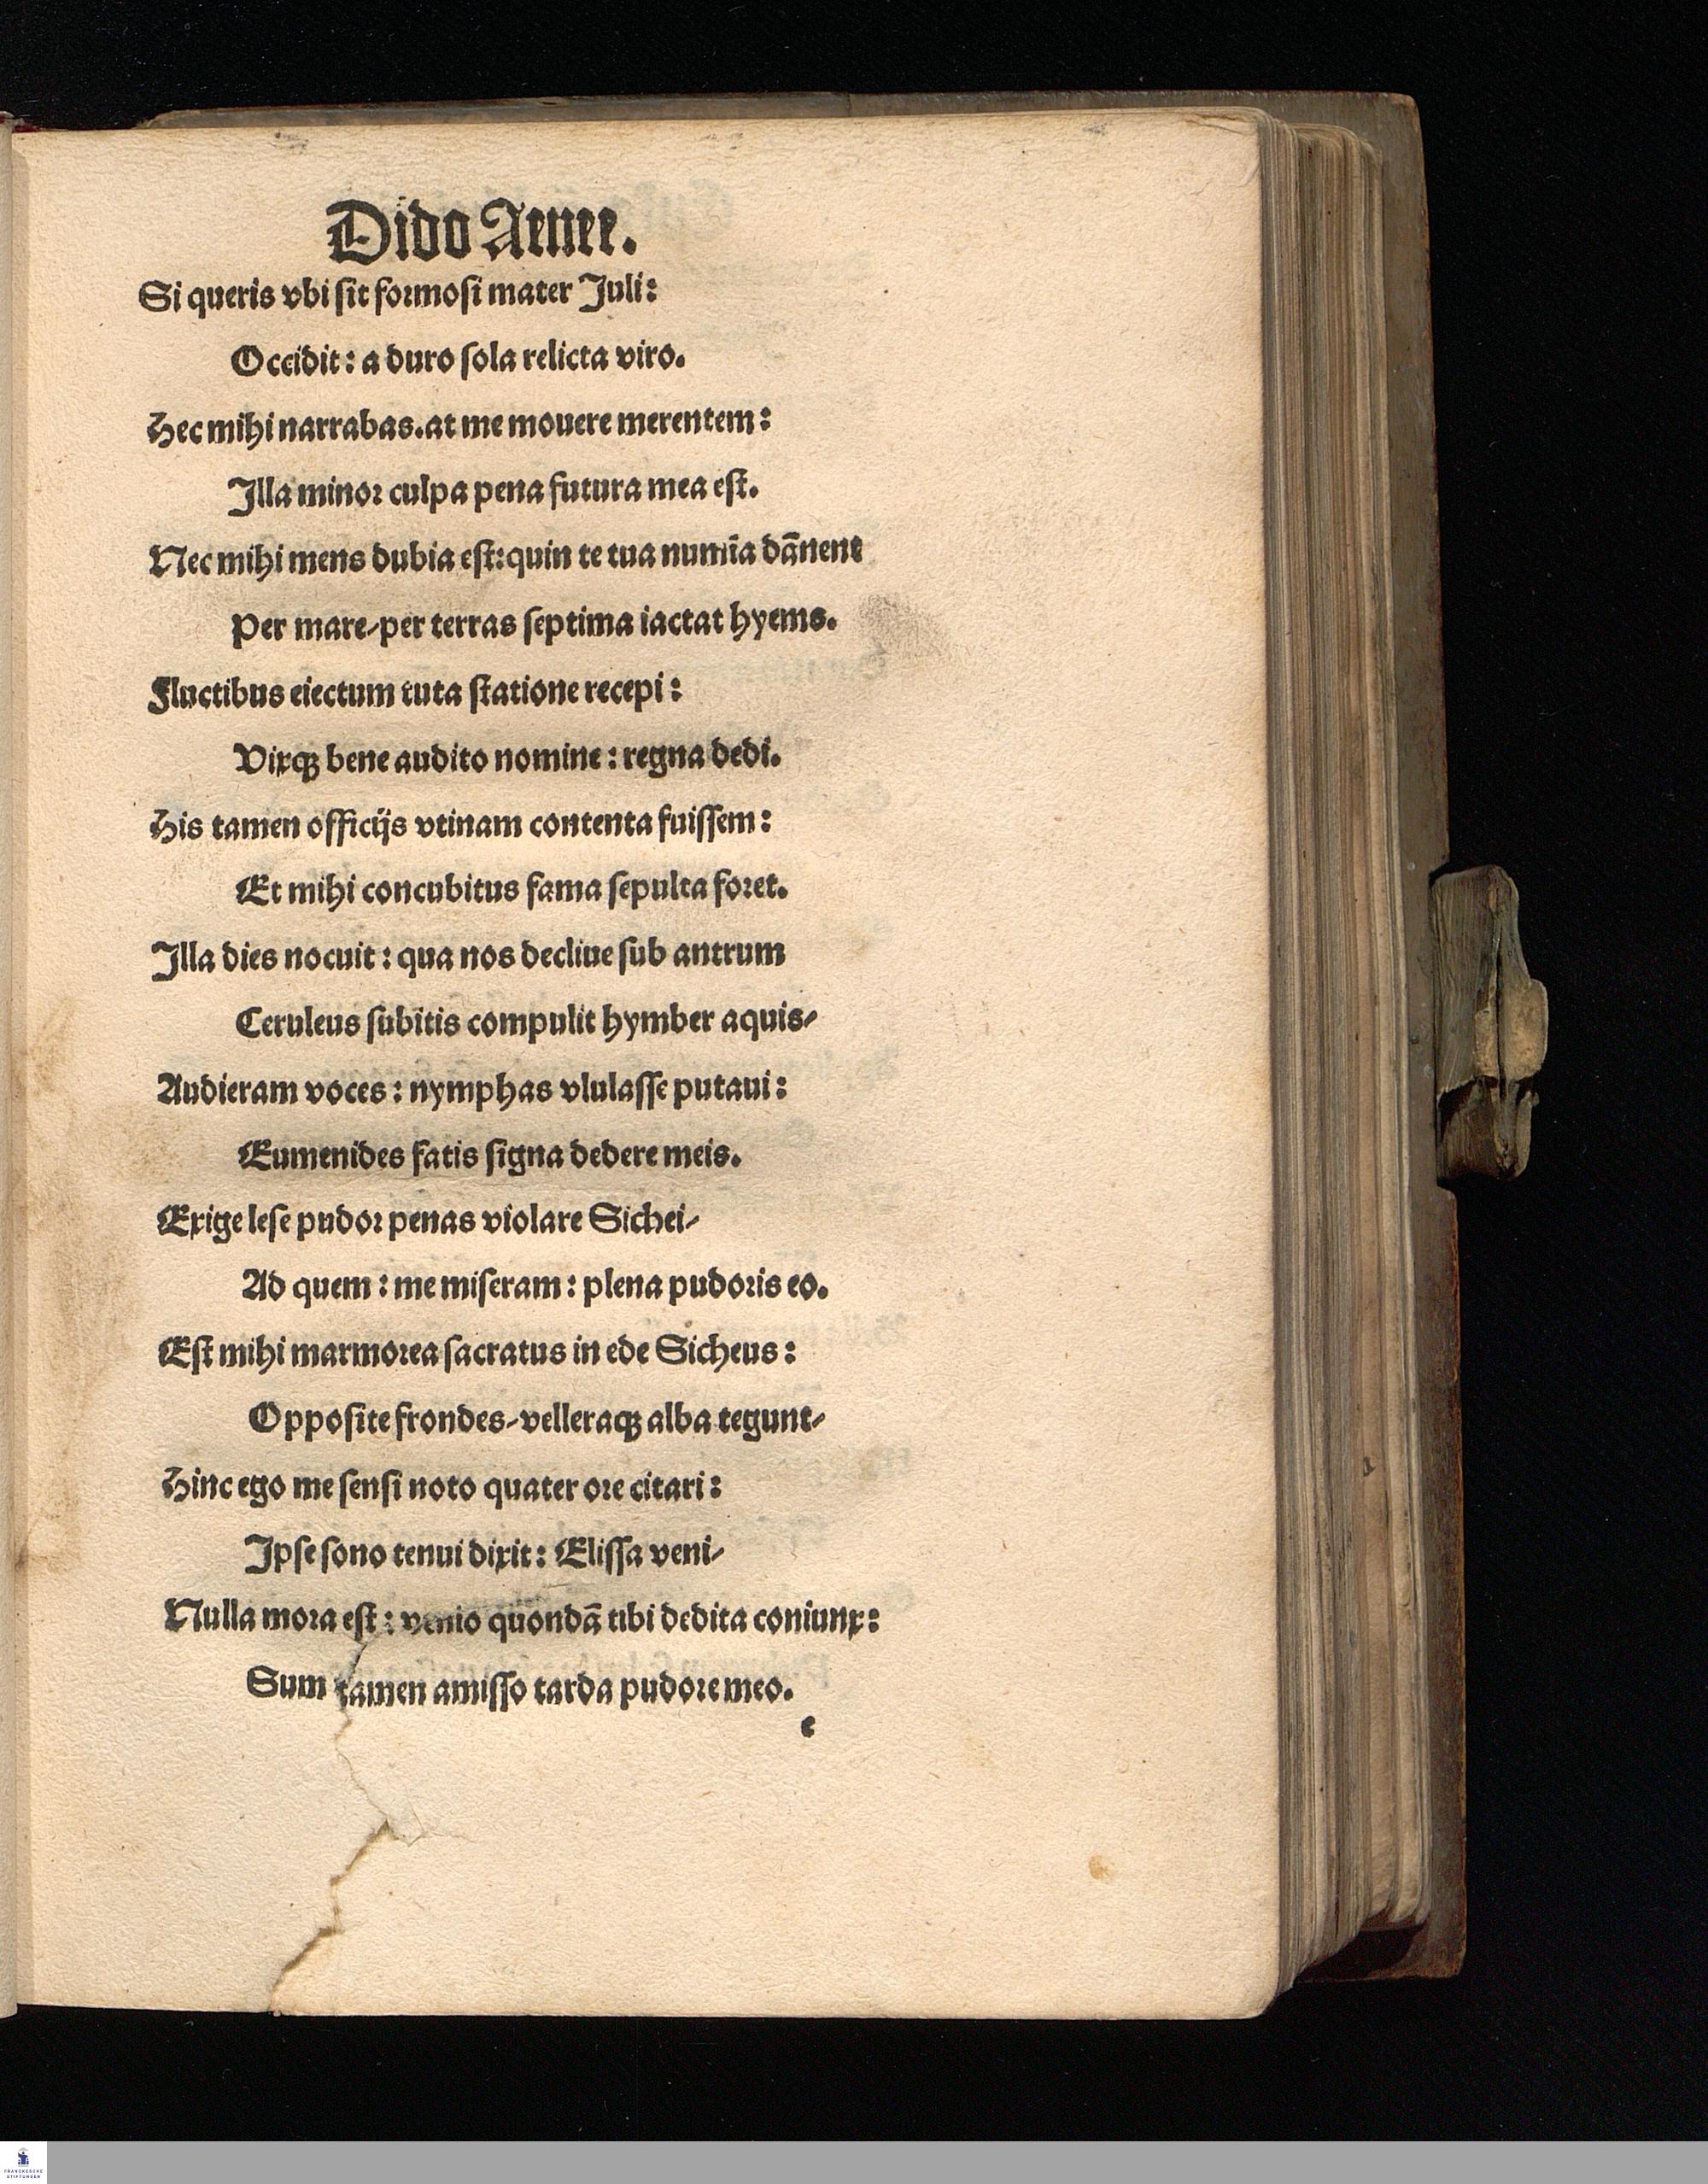 Dido Aenee.
Si queris vbi sit formosi mater Juli:
Occidit: a duro sola relicta viro.
Hec mihi narrabas.at me mouere merentem:
Illa minor culpa pena futura mea est.
Nec mihi mens dubia est:quin te tua numīa dānent
Per mare/per terras septima iactat hyems.
Fluctibus eiectum tuta statione recepi:
Vixqꝫ bene audito nomine: regna dedi.
His tamen officijs vtinam contenta fuissem:
Et mihi concubitus fama sepulta foret.
Illa dies nocuit: qua nos decliue sub antrum
Ceruleus subitis compulit hymber aquis/
Audieram voces: nymphas vlulasse putaui:
Eumenides fatis signa dedere meis.
Exige lese pudor penas violare Sichei/
Ad quem: me miseram: plena pudoris eo.
Est mihi marmorea sacratus in ede Sicheus:
Opposite frondes/velleraqꝫ alba tegunt/
Hinc ego me sensi noto quater ore citari:
Ipse sono tenui dixit: Elissa veni/
Nulla mora est: venio quondā tibi dedita coniunx:
Sum tamen amisso tarda pudore meo.
e
FRANCKESCHE
STIFTUNGEN